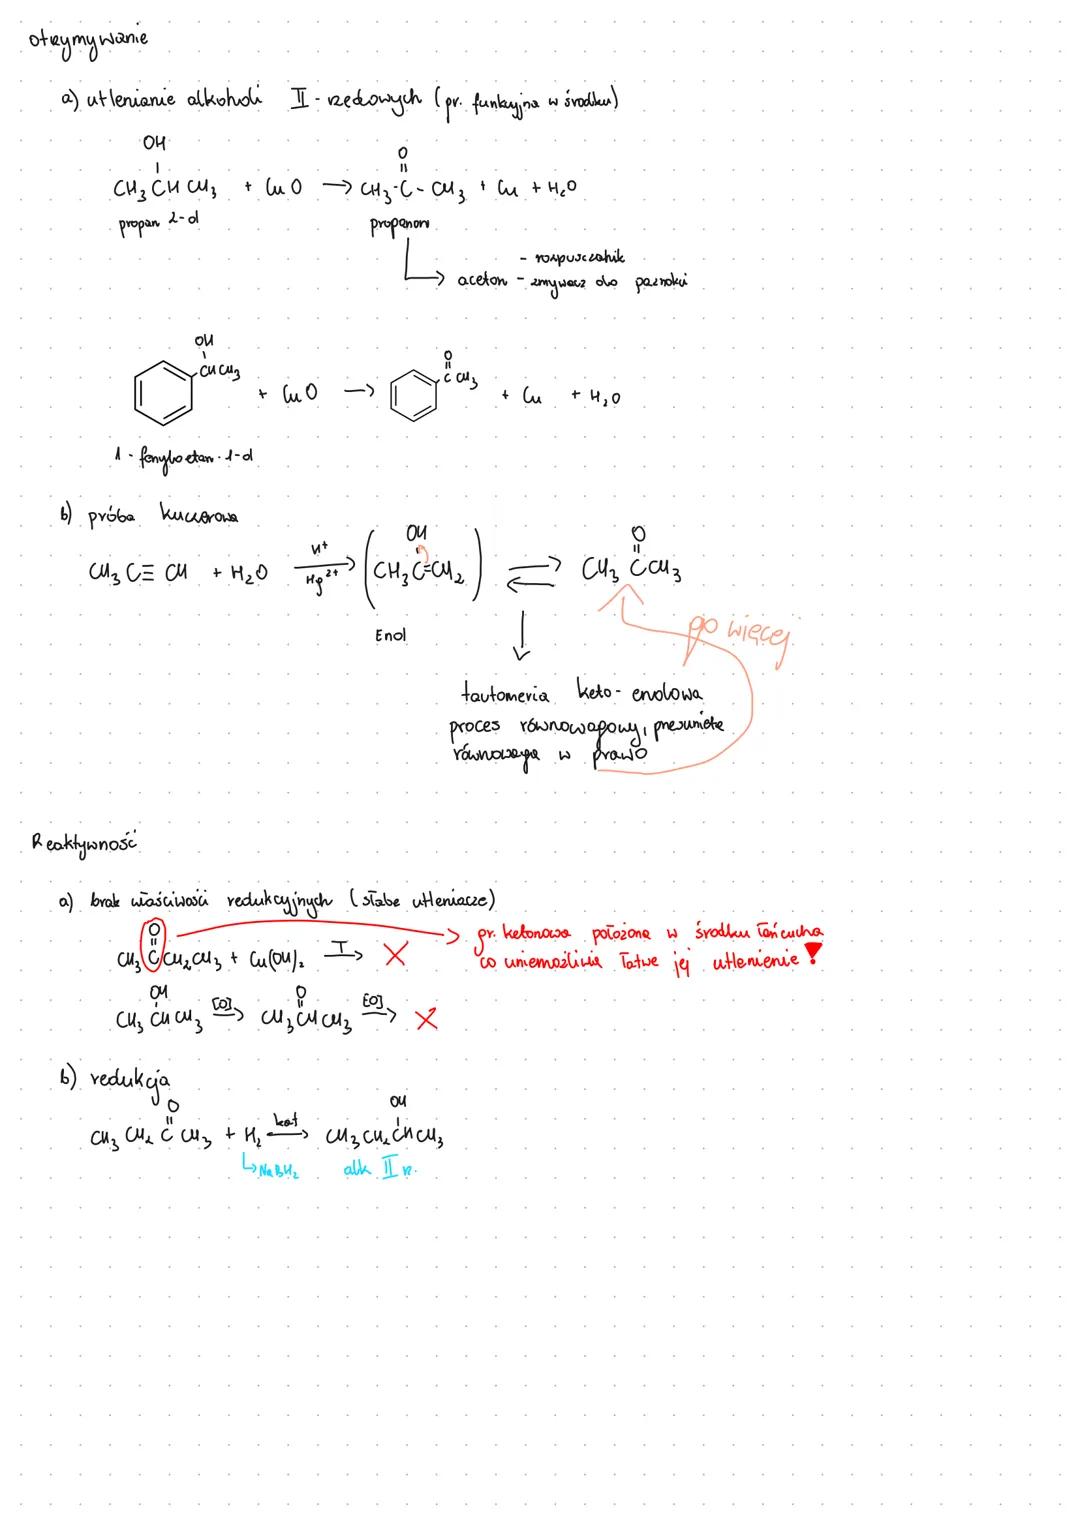 otrzymywanie
a) utlenianie alkoholi II-rzędowych (gr. funkcyjna w środku)
OH O
CH₃CHCH₃ + CuO → CH₃-C-CH₃ + Cu + H₂O
propan 2-ol propanon
- rozpuszczalnik
aceton - zmywacz do paznokci
OH O
CHCH₃ + CuO → CCH₃ + Cu + H₂O
1-fenyloetan-1-ol
b) próba Kuczerowa
OH O
CH₃C≡CH + H₂O H⁺ Hg²⁺ → (CH₃C=CH₂) ⇌ CH₃CCH₃
Enol
go więcej
tautomeria keto-enolowa
proces równowagowy, przesunięta
równowaga w prawo
Reaktywność
a) brak właściwości redukcyjnych (słabe utleniacze)
O
CH₃CCH₂CH₃ + Cu(OH)₂ T→ X
gr. ketonowa położona w środku łańcucha
co uniemożliwia łatwe jej utlenienie !
OH O
CH₃CHCH₃ [O]→ CH₃CHCH₃ [O]→ X
b) redukcja
O OH
CH₃CH₂CCH₃ + H₂ kat→ CH₃CH₂CHCH₃
↳NaBH₂ alk II rz.